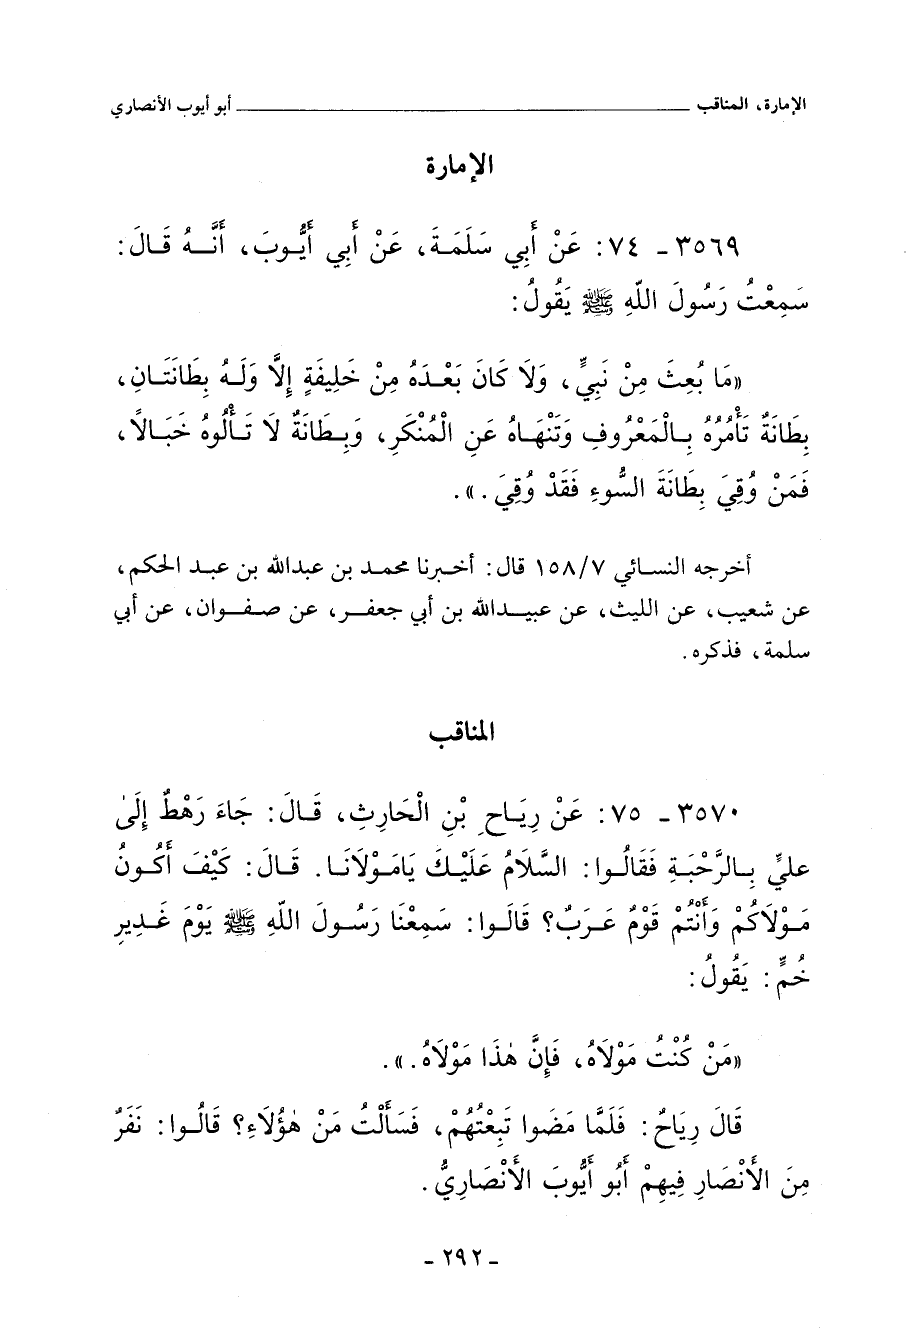 الإمارة، المناقب ــــــــــــــــــــ أبو أيوب الأنصاري
الإمارة
٣٥٦٩ ـ ٧٤: عَنْ أَبِي سَلَمَةَ، عَنْ أَبِي أَيُّوبَ، أَنَّهُ قَالَ:
سَمِعْتُ رَسُولَ اللّهِ ﷺ يَقُولُ:
«مَا بُعِثَ مِنْ نَبِيٍّ، وَلَا كَانَ بَعْدَهُ مِنْ خَلِيفَةٍ إِلَّا وَلَهُ بِطَانَتَانِ،
بِطَانَةٌ تَأْمُرُهُ بِالْمَعْرُوفِ وَتَنْهَاهُ عَنِ الْمُنْكَرِ، وَبِطَانَةٌ لَا تَأْلُوهُ خَبَالًا،
فَمَنْ وُقِيَ بِطَانَةَ السُّوءِ فَقَدْ وُقِيَ.».
أخرجه النسائي ١٥٨/٧ قال: أخبرنا محمد بن عبدالله بن عبد الحكم،
عن شعيب، عن الليث، عن عبيدالله بن أبي جعفر، عن صفوان، عن أبي
سلمة، فذكره.
المناقب
٣٥٧٠ ـ ٧٥: عَنْ رِيَاحِ بْنِ الْحَارِثِ، قَالَ: جَاءَ رَهْطٌ إِلَىٰ
عليٍّ بِالرَّحْبَةِ فَقَالُوا: السَّلَامُ عَلَيْكَ يَامَوْلَانَا. قَالَ: كَيْفَ أَكُونُ
مَوْلَاكُمْ وَأَنْتُمْ قَوْمٌ عَرَبٌ؟ قَالُوا: سَمِعْنَا رَسُولَ اللّهِ ﷺ يَوْمَ غَدِيرِ
خُمٍّ: يَقُولُ:
«مَنْ كُنْتُ مَوْلَاهُ، فَإِنَّ هٰذَا مَوْلَاهُ.».
قَالَ رِيَاحٌ: فَلَمَّا مَضَوا تَبِعْتُهُمْ، فَسَأَلْتُ مَنْ هٰؤُلَاءِ؟ قَالُوا: نَفَرٌ
مِنَ الْأَنْصَارِ فِيهِمْ أَبُو أَيُّوبَ الْأَنْصَارِيُّ.
ـ ٢٩٢ ـ